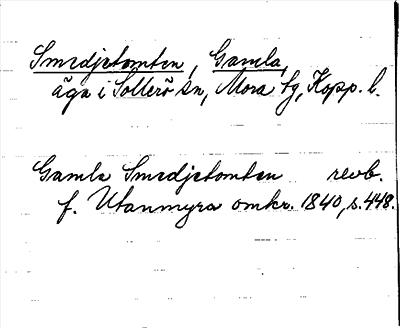 Smedjetomten, Gamla,
äga i Sollerö sn, Mora fg, Kopp. l.
Gamla Smedjetomten revb.
f. Utanmyra omkr. 1840, s. 448.